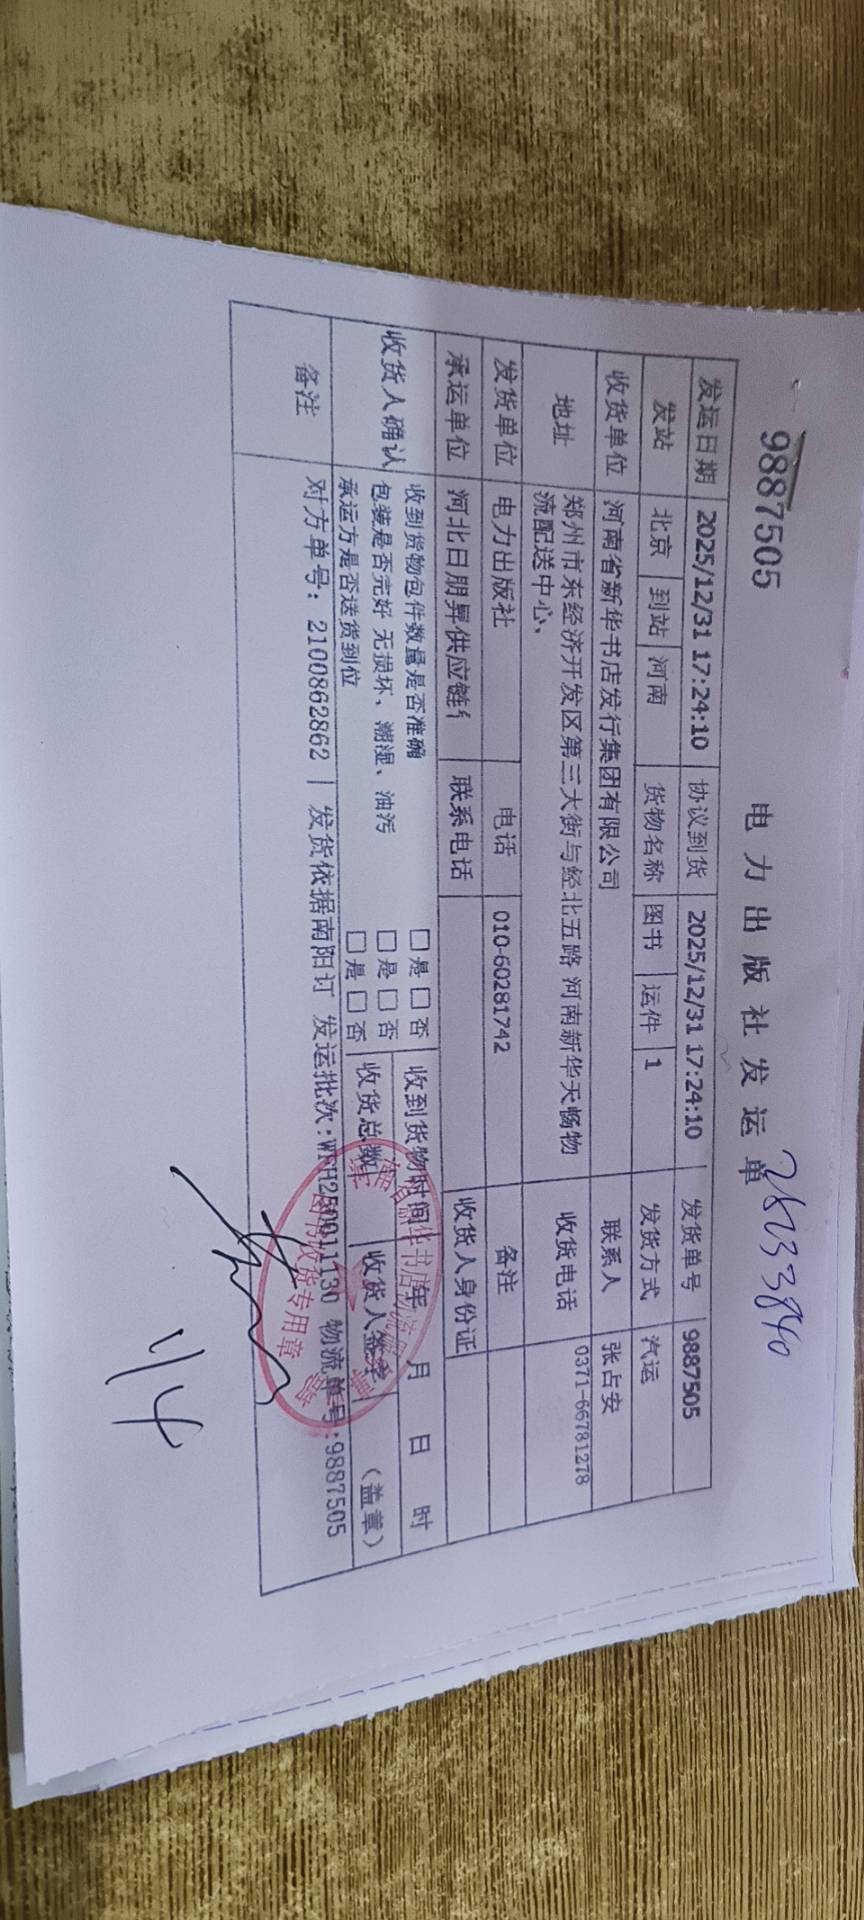 9887505
电力出版社发运单
28233840
发运日期 2025/12/31 17:24:10 协议到货 2025/12/31 17:24:10 发货单号 9887505
发站 北京 到站 河南 货物名称 图书 运件 1 发货方式 汽运
收货单位 河南省新华书店发行集团有限公司 联系人 张占安
地址 郑州市东经济开发区第三大街与经北五路 河南新华天畅物
流配送中心、 收货电话 0371-66781278
发货单位 电力出版社 电话 010-60281742 备注
承运单位 河北日朋昇供应链 联系电话 收货人身份证
收货人确认 收到货物包件数量是否准确 □是□否 收到货物时间 年 月 日 时
包装是否完好 无损坏、潮湿、油污 □是□否 收货总数 收货人签字 (盖章)
承运方是否送货到位 □是□否
备注 对方单号: 2100862862 | 发货依据南阳订 发运批次:WFH250011130 物流单号:9887505
图书收货专用章
1/4